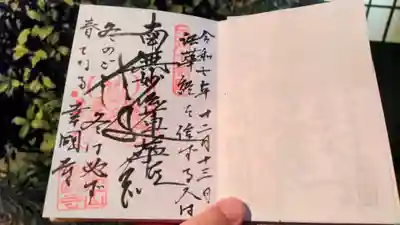 令和七年十二月十三日
法華経を信ずる人は
南無妙法蓮華経
冬のごとし
冬は必ず
春となる
幸國寺